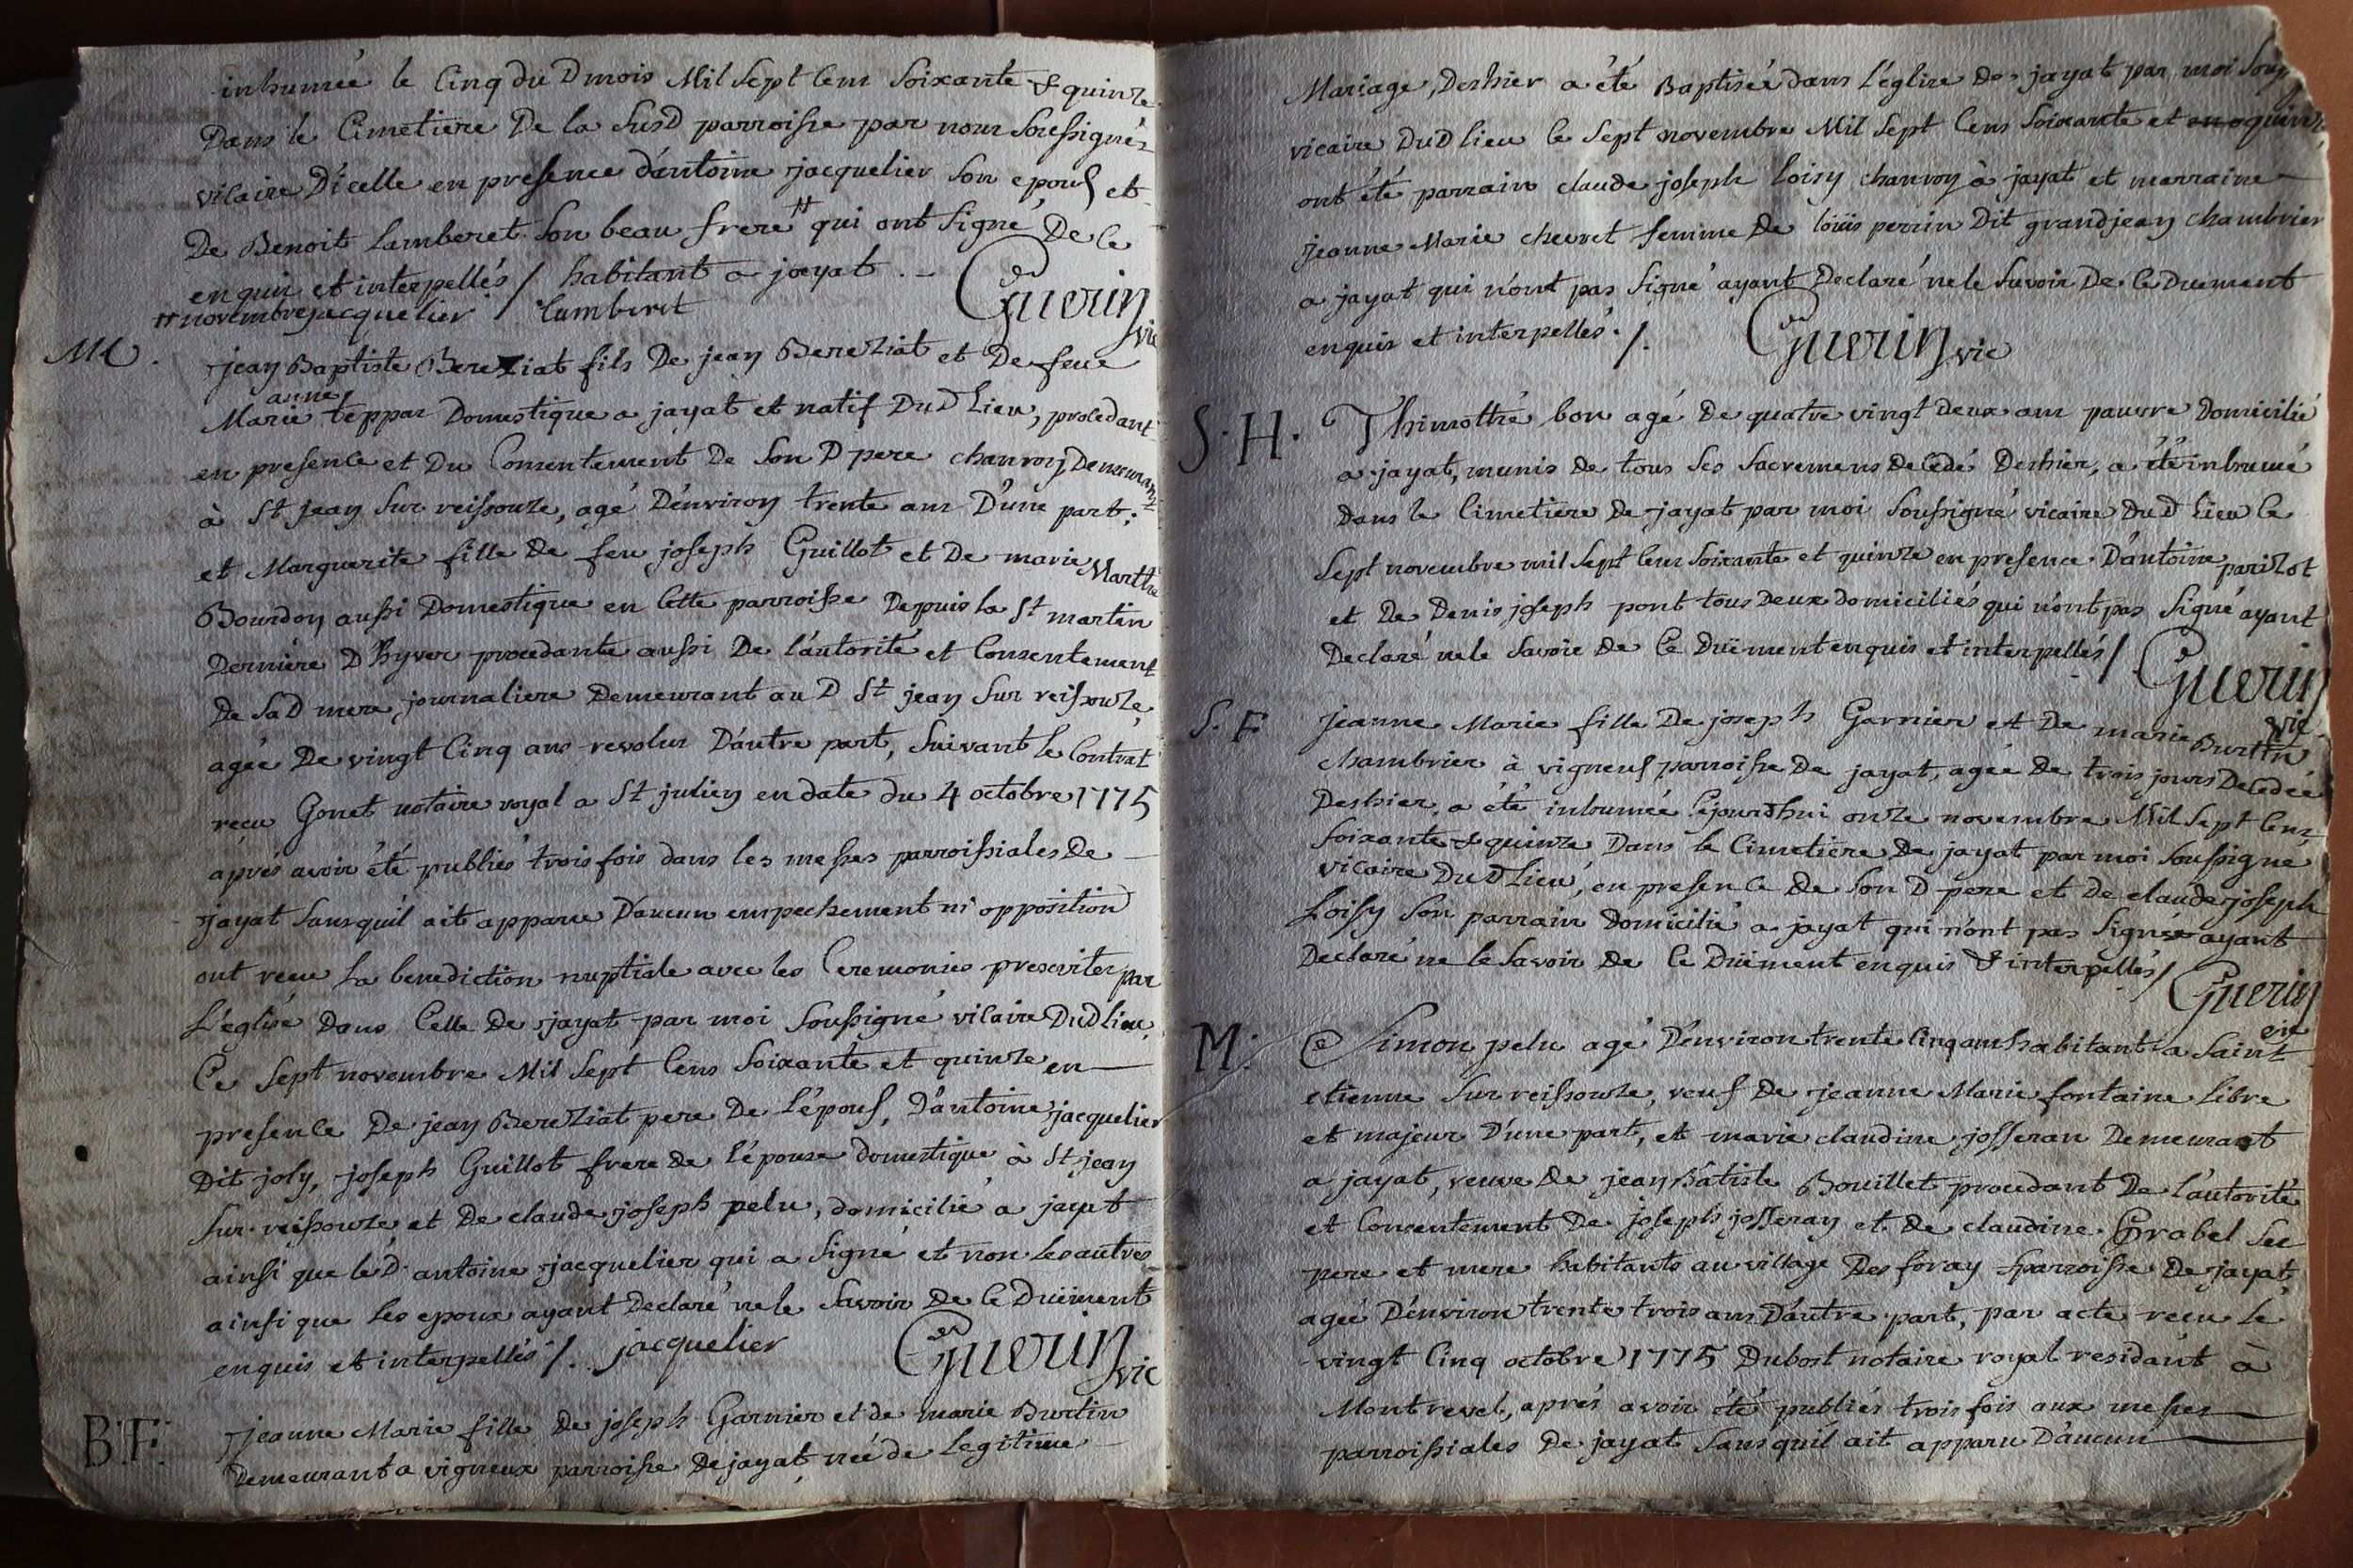 inhumée le Cinq du D mois Mil Sept Cens Soixante & quinze
Dans le Cimetiere De la SusD parroisse par nous Soussigné
vicaire D'icelle en presence d'antoine jacquelier Son epoux et
De Benoit Lamberet Son beau frere # qui ont Signé De ce
enquis et interpellés / habitant a jayat . -
# novembre jacquelier Lamberet Guerin vic
M
jean Baptiste Bereziat fils De jean Bereziat et De feue
anne
Marie teppar Domestique a jayat et natif DuD Lieu, procedant
en presence et Du Consentement De Son D pere chanvoy Demeurant
à St jean Sur reissouze, agé D'environ trente ans D'une part;
et Marguerite fille De feu joseph Guillot et De marie Marthe
Bourdon aussi Domestique en Cette parroisse Depuis la St martin
Derniere D'hyver procedante aussi De l'autorité et Consentement
De SaD mere, journaliere Demeurant au D St jean Sur reissouze,
agée De vingt Cinq ans revolus D'autre part, Suivant le Contrat
recu Gonet notaire royal a St julien en date du 4 octobre 1775
aprés avoir été publiés trois fois dans les messes parroissiales De
jayat Sans qu'il ait apparu D'aucun empechement ni opposition
ont recu La benediction nuptiale avec les Ceremonies prescrites par
L'eglise Dans Celle De jayat par moi Soussigné vicaire DuD lieu
Ce Sept novembre Mil Sept Cens Soixante et quinze en
presence De jean Bereziat pere De L'époux, D'antoine jacquelier
Dit joly, joseph Guillot frere De L'épouse domestique à St jean
Sur reissouze et De claude joseph pelu, domicilié a jayat
ainsi que leD antoine jacquelier qui a Signé et non les autres
ainsi que Les epoux ayant Declaré ne le Savoir De Ce Duement
enquis et interpellés /. jacquelier Guerin vic
B.F.
jeanne Marie fille De joseph Garnier et de marie Burtin
Demeurant a vigneux parroisse De jayat, née de Legitime
Mariage, Deshier a été Baptisée dans L'église De jayat par moi
vicaire DuD lieu le Sept novembre Mil Sept Cens Soixante et quinze
ont été parrain claude joseph loisy chanvoy à jayat et marraine
jeanne Marie chevret femme De loüis perrin Dit grandjean chambrier
a jayat qui n'ont pas Signé ayant Declaré ne le Savoir De Ce Duement
enquis et interpellés. /. Guerin vic
S.H.
Thimothé bon agé De quatre vingt Deux ans pauvre Domicilié
a jayat, munis de tous Ses Sacremens Decedé Deshier, a été inhumé
Dans le Cimetiere De jayat par moi Soussigné vicaire DuD Lieu le
Sept novembre mil Sept Cens Soixante et quinze en presence D'antoine parizot
et De Denis joseph pont tous Deux domiciliés qui n'ont pas Signé ayant
Declaré ne le Savoir De Ce Duëment enquis et interpellés / Guerin vic
S.F.
jeanne Marie fille De joseph Garnier et De marie Burtin
chambrier à vigneux parroisse De jayat, agée De trois jours Decedée
Deshier, a été inhumée Cejourd'hui onze novembre Mil Sept Cens
Soixante & quinze Dans le Cimetiere De jayat par moi Soussigné
vicaire DuD Lieu, en presence De Son D pere et De claude joseph
Loisy Son parrain Domicilié a jayat qui n'ont pas Signés ayant
Declaré ne le Savoir De Ce Duëment enquis & interpellés / Guerin vic
M.
Simon pelu agé D'environ trente Cinq ans habitant a Saint
etienne Sur reissouze, veuf De jeanne Marie fontaine Libre
et majeur D'une part, et marie claudine josseran Demeurant
a jayat, veuve De jean Bâtiste Bouillet procedant De l'autorité
et Consentement De joseph josseran et De claudine Grabel Ses
pere et mere habitants au village Des foray parroisse De jayat
ageé D'environ trente trois ans D'autre part, par acte recu le
vingt Cinq octobre 1775 Dubost notaire royal residant à
Montrevel, aprés avoir été publiés trois fois aux messes
parroissiales De jayat Sans qu'il ait apparu D'aucun